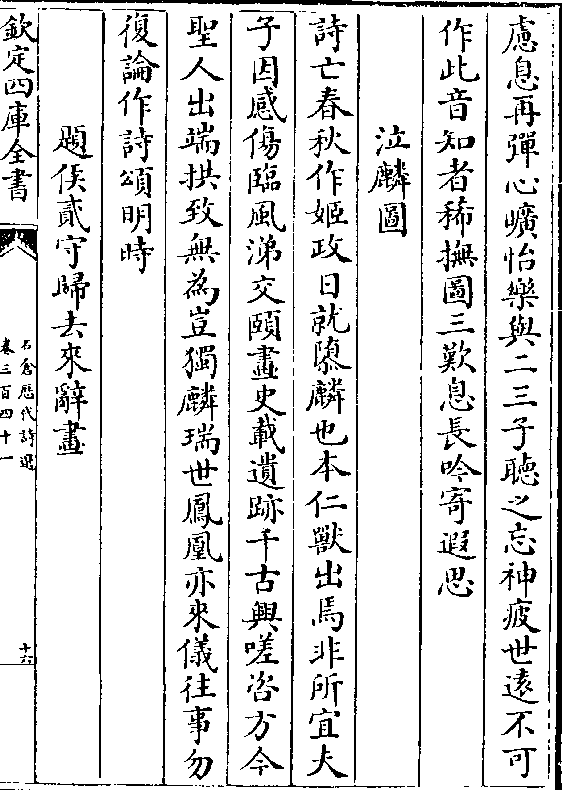 慮息再彈心曠怡樂與二三子聽之忘神疲世逺不可
作此音知者稀撫圖三歎息長吟寄遐思
泣麟圖
詩亡春秋作姬政日就隳麟也本仁獸出焉非所宜夫
子因感傷臨風涕交頤畫史載遺跡千古興嗟咨方今
聖人出端拱致無為豈獨麟瑞世鳳凰亦來儀往事勿
復論作詩頌明時
題侯貳守歸去來辭畫
欽定四庫全書
石倉歴代詩選
卷三百四十一
十六